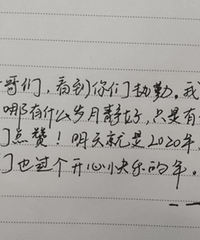 哥们，看到你们执勤。我
哪有什么岁月静好，只是有
门点赞！明天就是2020年，
门也过个开心快乐的年。